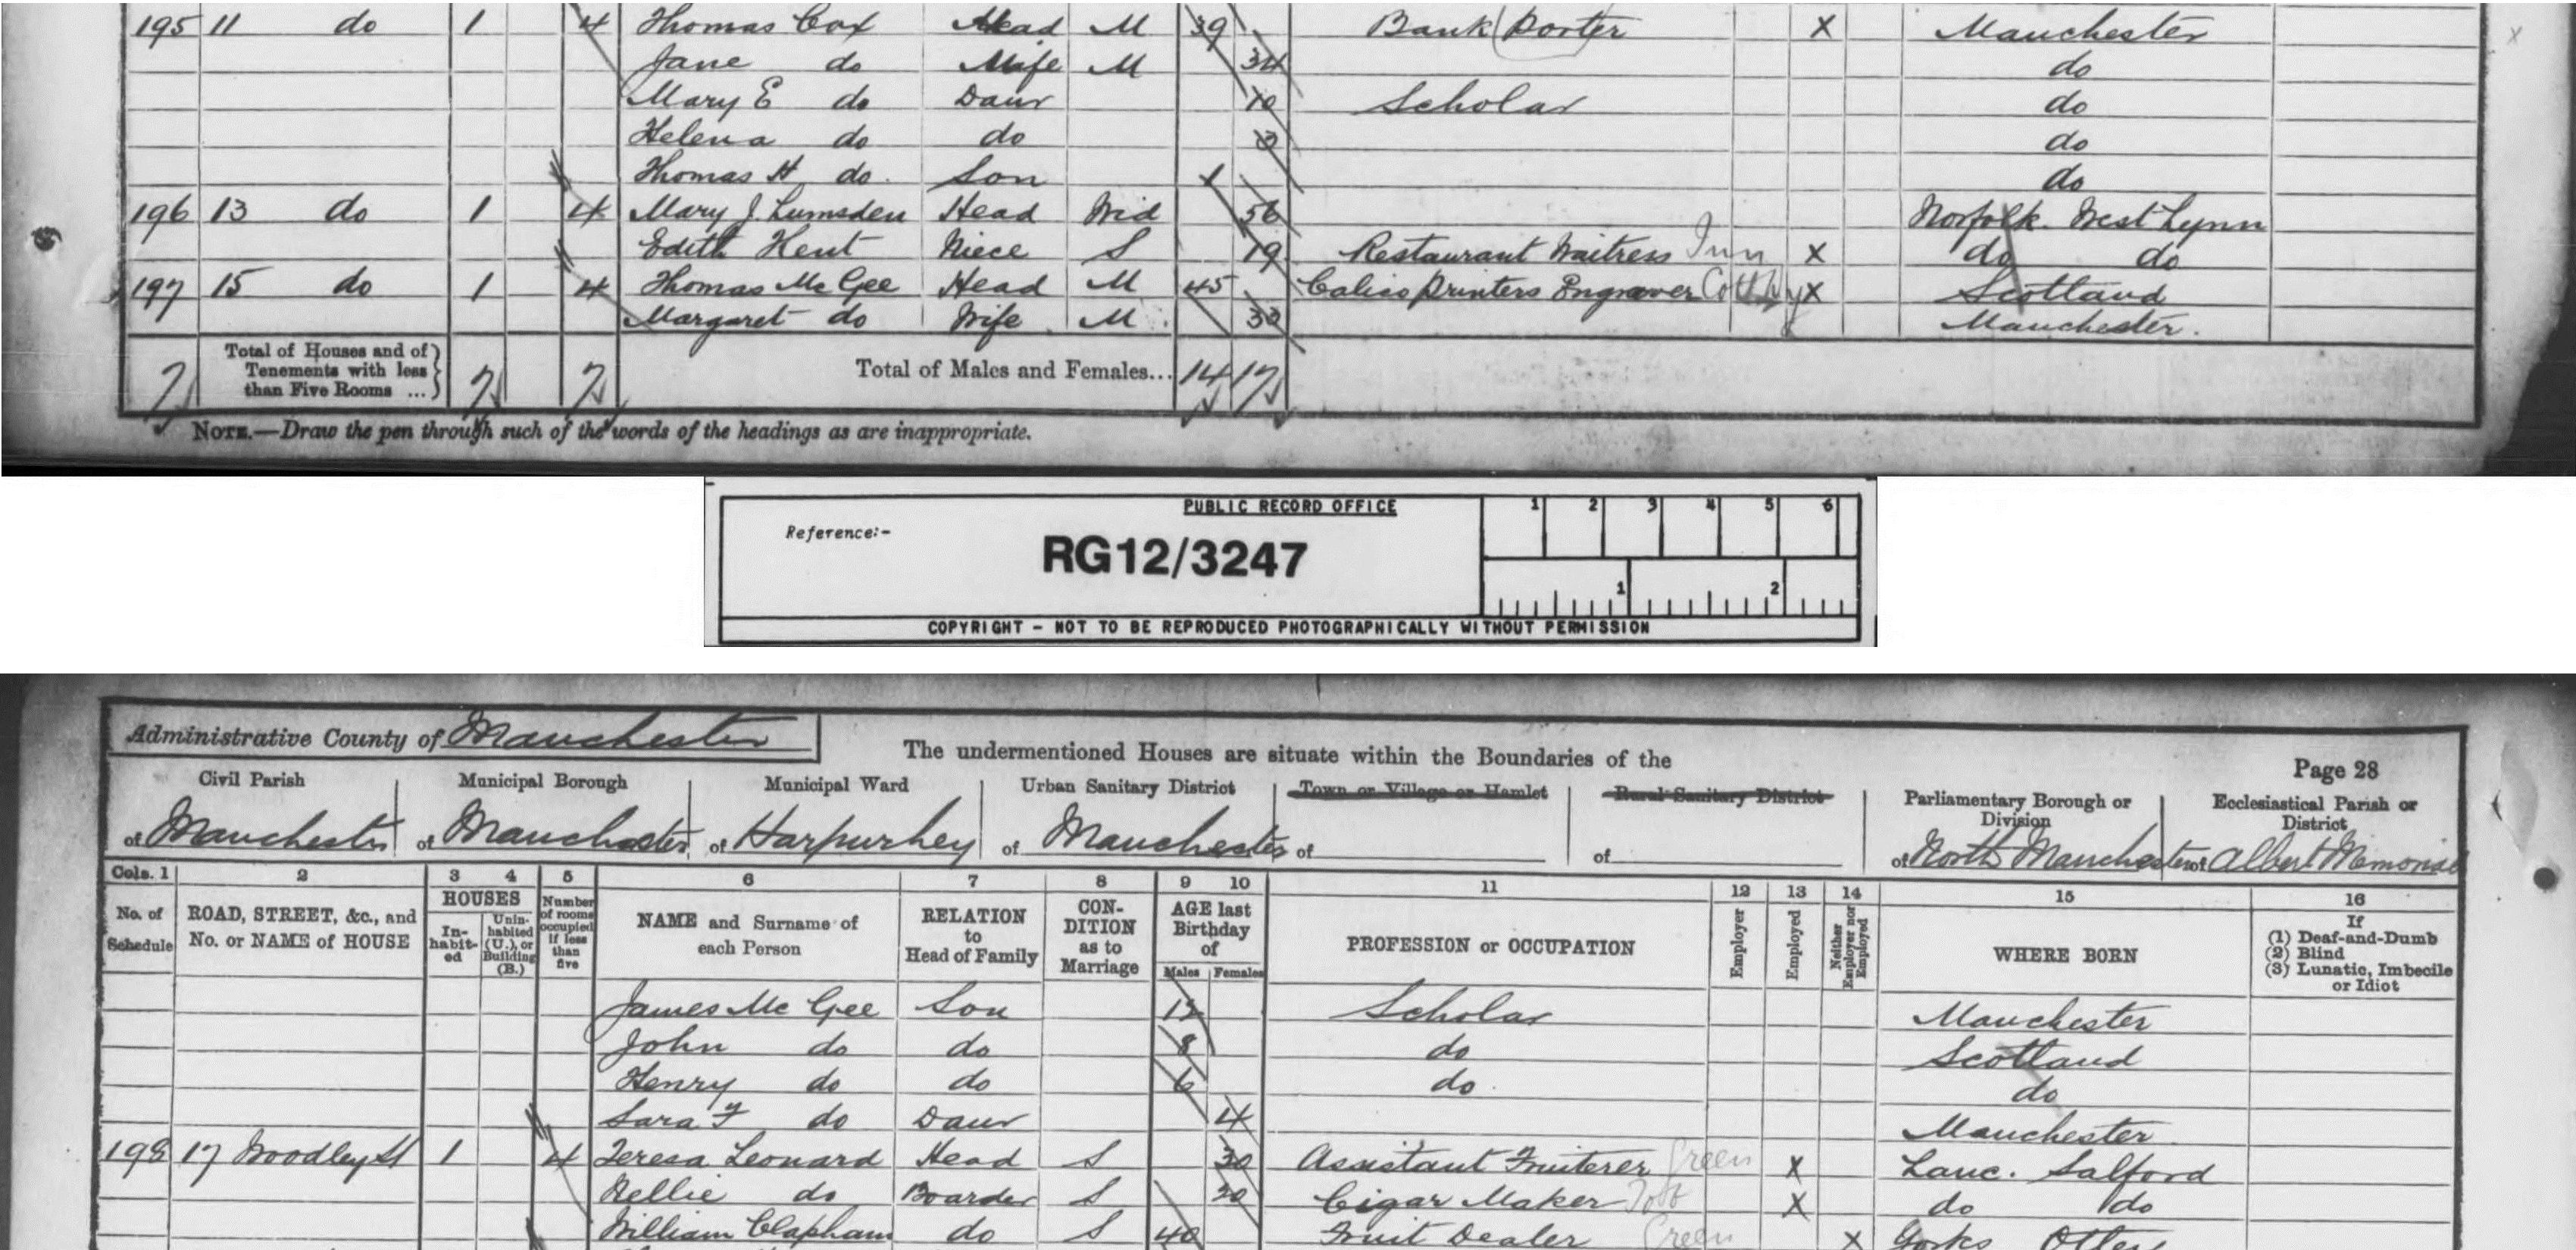 195 11 do 1 4 Thomas Cox Head M 39 Bank Porter X Manchester
Jane do Wife M 34 do
Mary E do Daur 10 Scholar do
Helena do do 3 do
Thomas H do. Son do
196 13 do 1 4 Mary J. Lumsden Head Wid 56 Norfolk. West Lynn
Edith Kent Niece S 19 Restaurant Waitress Inn X do do
197 15 do 1 4 Thomas Mc Gee Head M 45 Calico Printers Engraver X Scotland
Margaret do Wife M Manchester.
7 Total of Houses and of Tenements with less than Five Rooms ... 7 7 Total of Males and Females... 14 17
NOTE.—Draw the pen through such of the words of the headings as are inappropriate.
PUBLIC RECORD OFFICE 1 2 3 4 5 6
Reference:-
RG12/3247
1 2
COPYRIGHT - NOT TO BE REPRODUCED PHOTOGRAPHICALLY WITHOUT PERMISSION
Administrative County of Manchester
The undermentioned Houses are situate within the Boundaries of the
Page 28
Civil Parish Municipal Borough Municipal Ward Urban Sanitary District Town or Village or Hamlet Rural Sanitary District Parliamentary Borough or Division Ecclesiastical Parish or District
of Manchester of Manchester of Harpurhey of Manchester of of of North Manchester of Albert Memorial
Cols. 1 2 3 4 5 6 7 8 9 10 11 12 13 14 15 16
No. of Schedule ROAD, STREET, &c., and No. or NAME of HOUSE HOUSES In-habit-ed Unin-habited (U.), or Building (B.) Number of rooms occupied if less than five NAME and Surname of each Person RELATION to Head of Family CON-DITION as to Marriage AGE last Birthday of Males Females PROFESSION or OCCUPATION Employer Employed Neither Employer nor Employed WHERE BORN If (1) Deaf-and-Dumb (2) Blind (3) Lunatic, Imbecile or Idiot
James Mc Gee Son Scholar Manchester
John do do 8 do Scotland
Henry do do 6 do. do
Sara F do Daur 4 Manchester
198 17 Woodley St 1 4 Teresa Leonard Head S 30 Assistant Fruiterer Green X Lanc. Salford
Nellie do Boarder S 20 Cigar Maker Tob X do do
William Clapham do S 40 Fruit Dealer Green X Yorks Otley